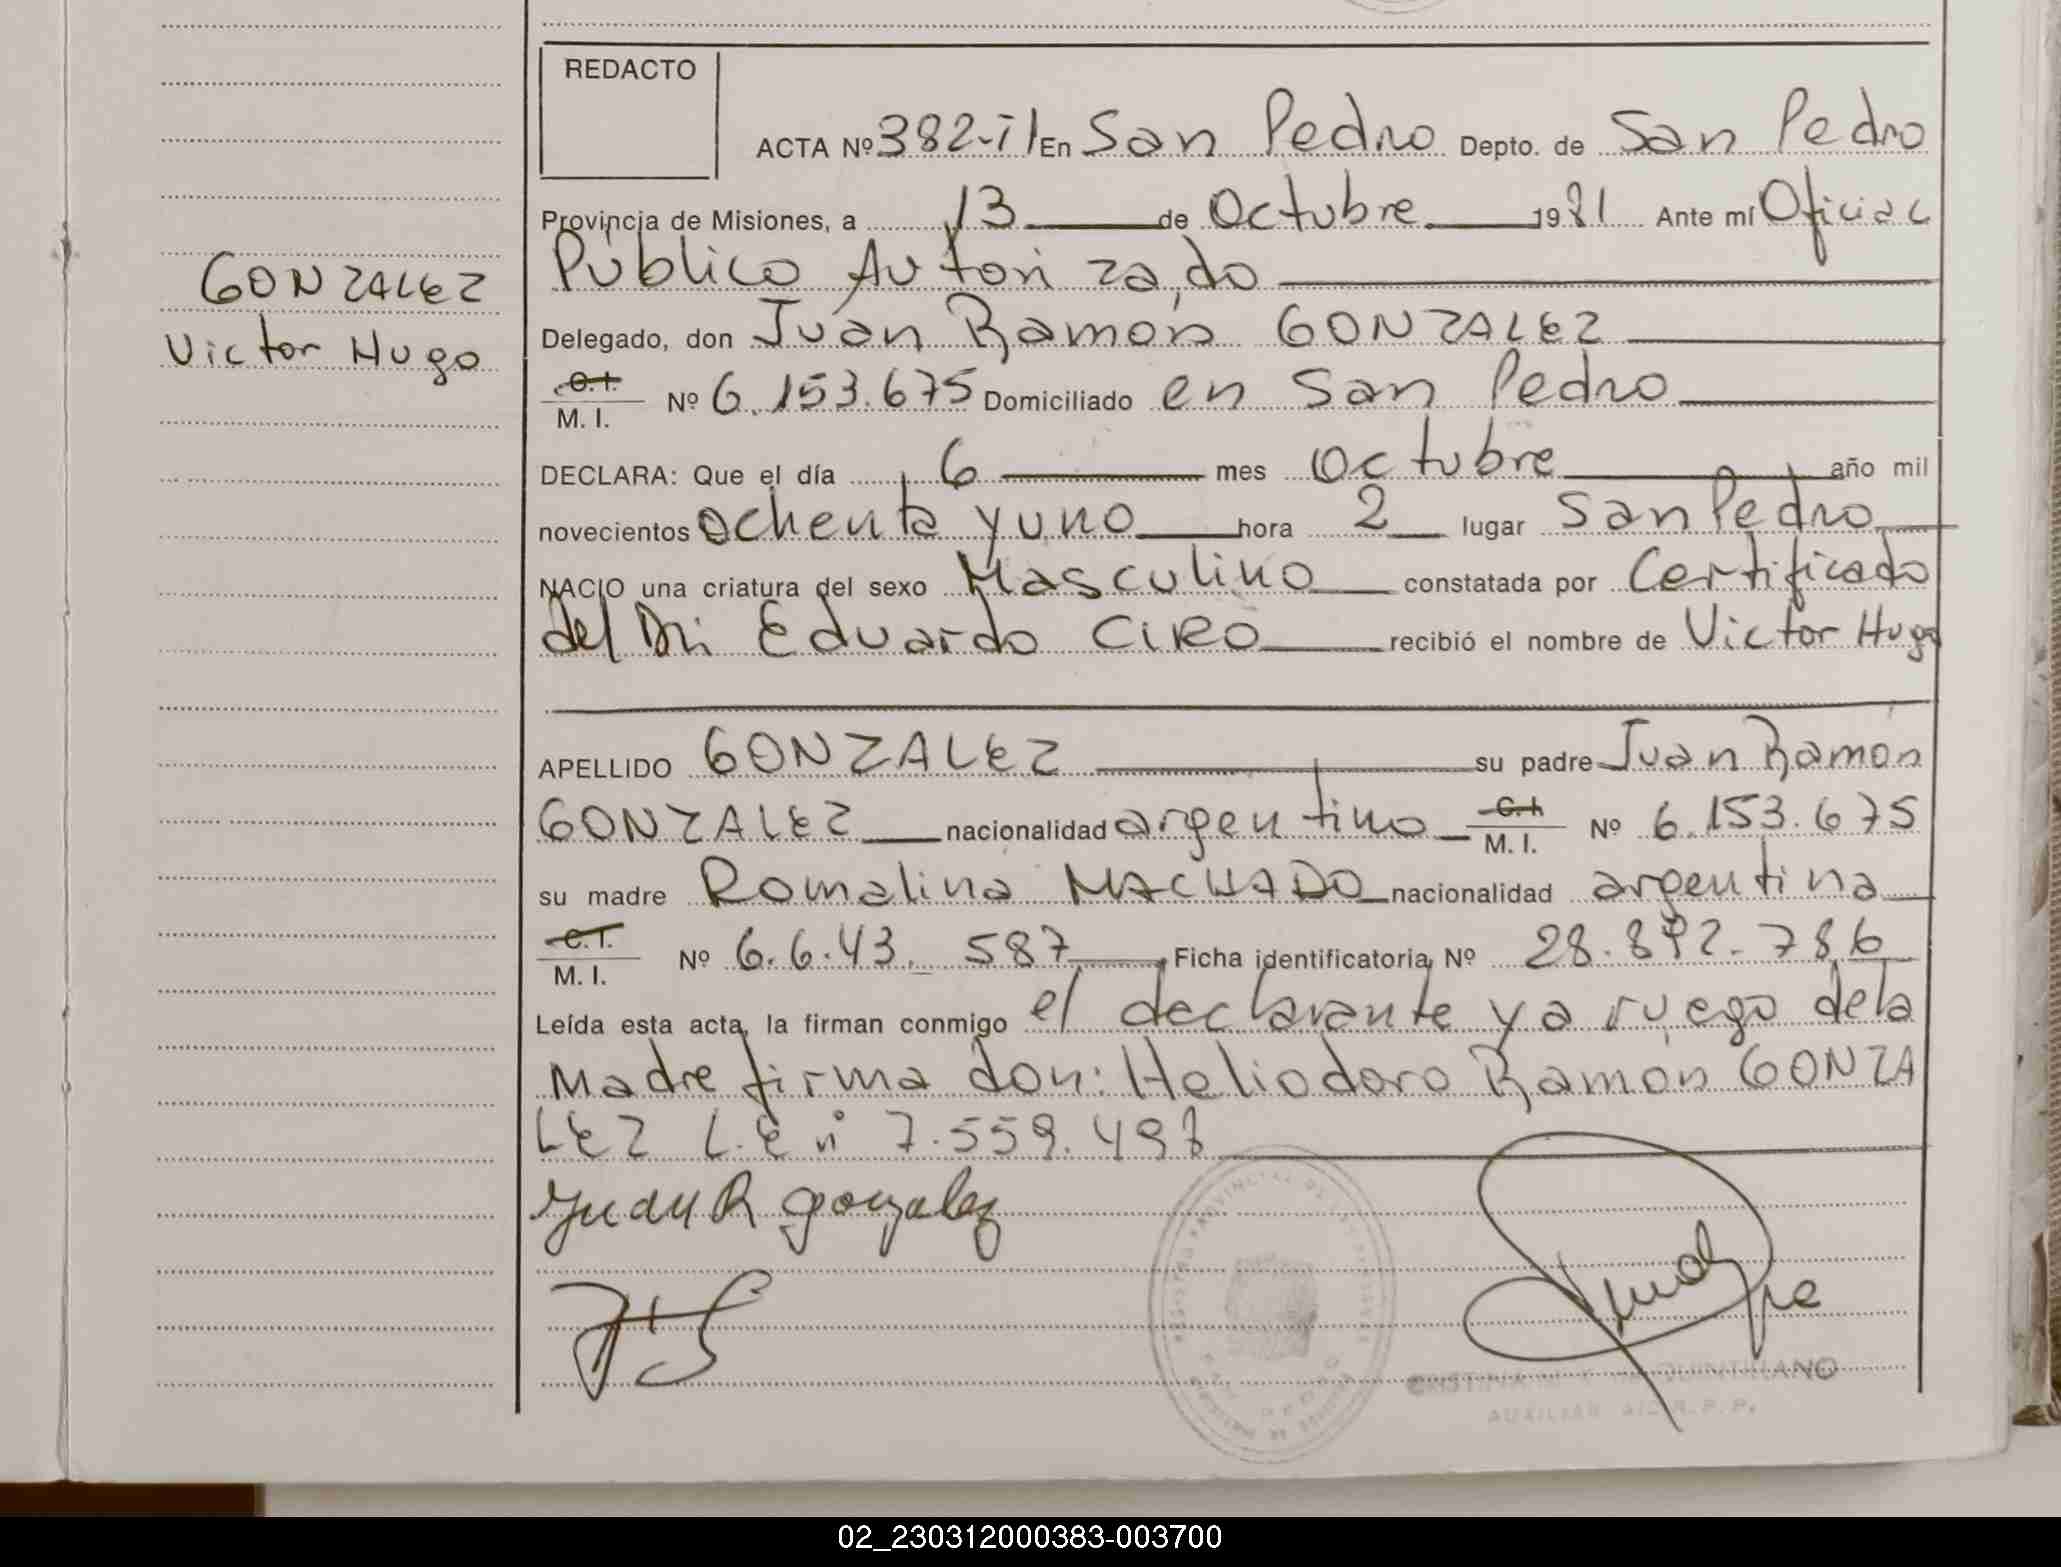 REDACTO
ACTA Nº 382-I En San Pedro Depto. de San Pedro
Provincia de Misiones, a 13 de Octubre 1981 Ante mí Oficial
Publico Autorizado
GONZALEZ
Victor Hugo
Delegado, don Juan Ramón GONZALEZ
C.I. M. I. Nº 6.153.675 Domiciliado en San Pedro
DECLARA: Que el día 6 mes Octubre año mil
novecientos ochenta y uno hora 2 lugar San Pedro
NACIO una criatura del sexo Masculino constatada por Certificado
del Dr: Eduardo CIRO recibió el nombre de Victor Hugo
APELLIDO GONZALEZ su padre Juan Ramón
GONZALEZ nacionalidad argentino C.I. M. I. Nº 6.153.675
su madre Romalina MACHADO nacionalidad argentina
C.I. M. I. Nº 6.6.43. 587 Ficha identificatoria Nº 28.892.786
Leída esta acta, la firman conmigo el declarante y a ruego de la
Madre firma don: Heliodoro Ramón GONZA
LEZ L.E nº 7.559.498
Juan R gonzalez
QUINTILIANO
AUXILIAR
02_230312000383-003700